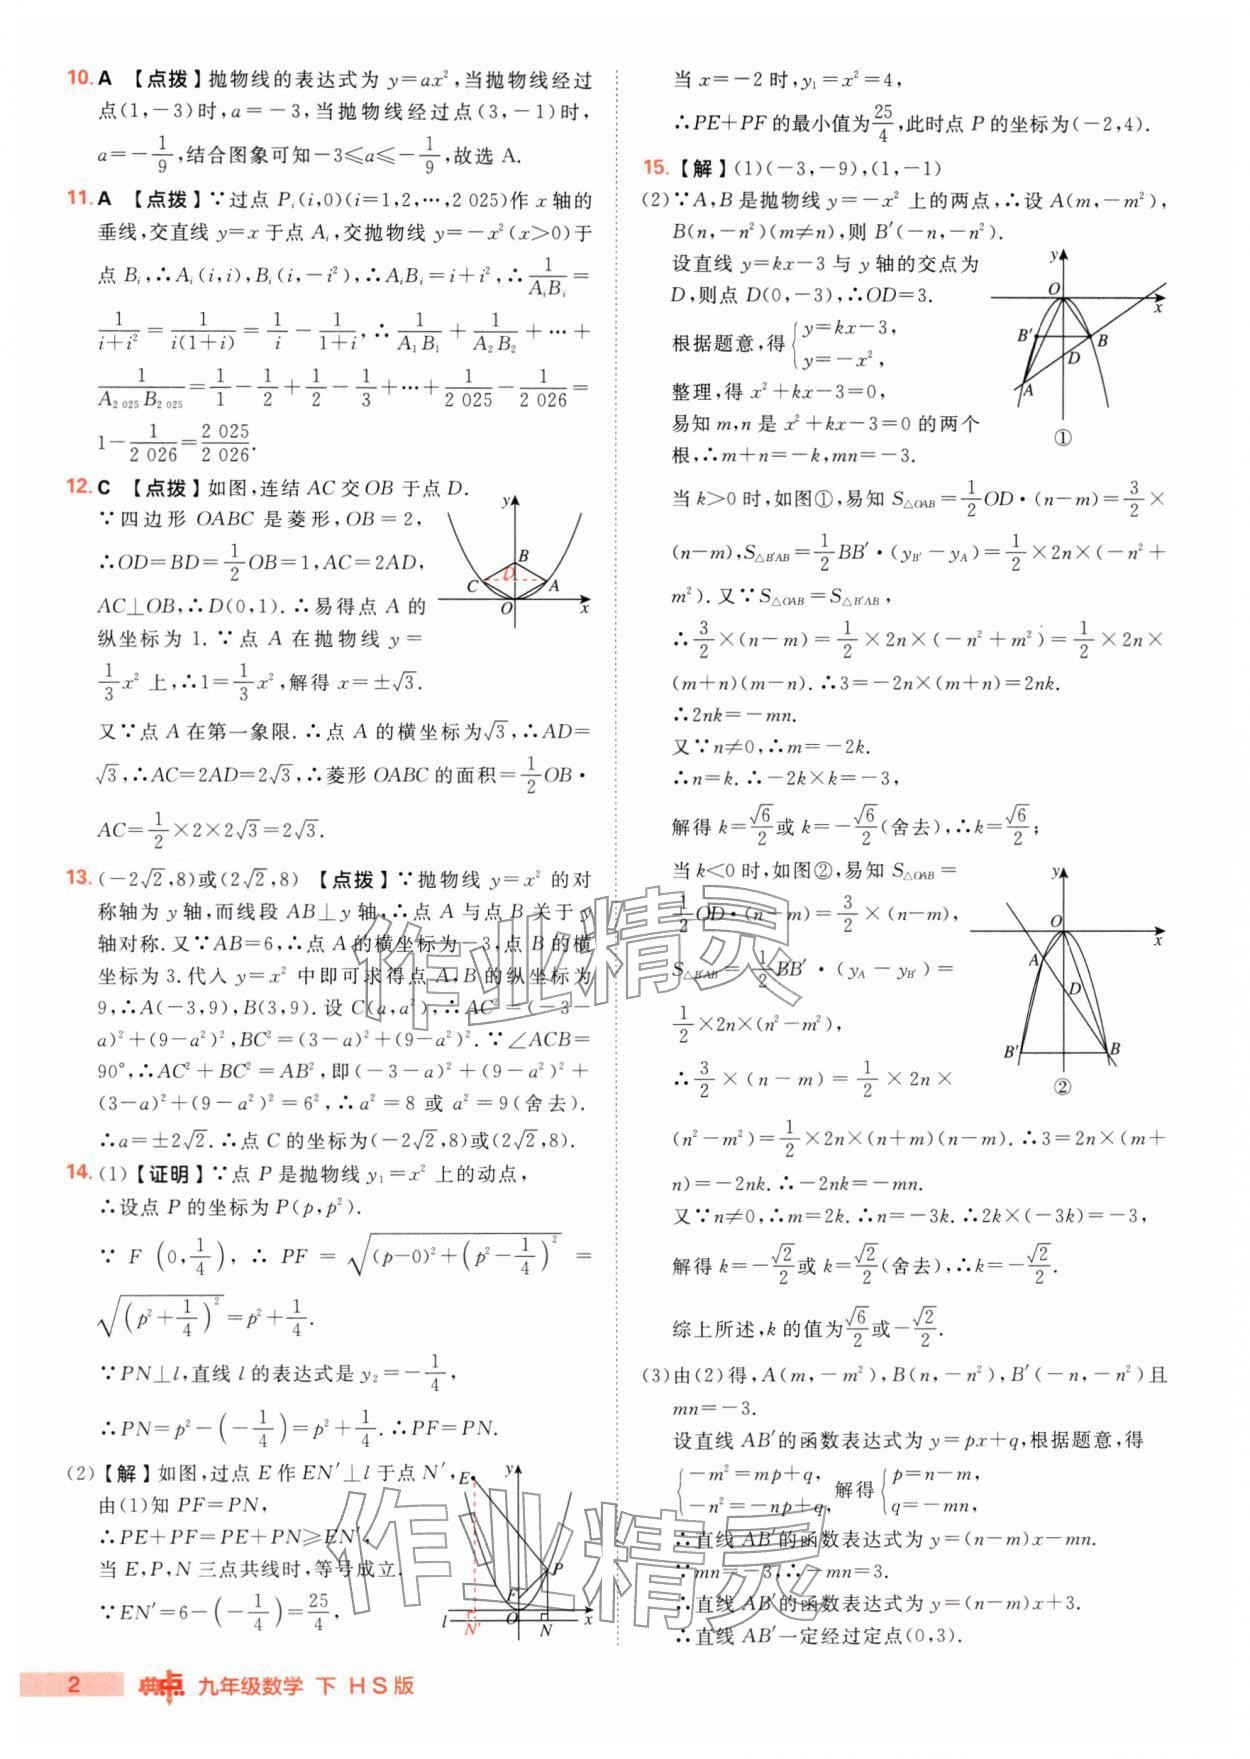 10. A 【点拨】抛物线的表达式为 y=ax²,当抛物线经过
点(1,-3)时,a=-3,当抛物线经过点(3,-1)时,
a=-1/9,结合图象可知-3≤a≤-1/9,故选 A.
11. A 【点拨】∵过点 Pᵢ(i,0)(i=1,2,…,2 025)作 x 轴的
垂线,交直线 y=x 于点 Aᵢ,交抛物线 y=-x²(x>0)于
点 Bᵢ,∴Aᵢ(i,i),Bᵢ(i,-i²),∴AᵢBᵢ=i+i²,∴1/(AᵢBᵢ)=
1/(i+i²)=1/(i(1+i))=1/i-1/(1+i),∴1/(A₁B₁)+1/(A₂B₂)+…+
1/(A₂ ₀₂₅B₂ ₀₂₅)=1/1-1/2+1/2-1/3+…+1/(2 025)-1/(2 026)=
1-1/(2 026)=(2 025)/(2 026).
12. C 【点拨】如图,连结 AC 交 OB 于点 D.
∵四边形 OABC 是菱形,OB=2,
∴OD=BD=1/2OB=1,AC=2AD,
AC⊥OB,∴D(0,1).∴易得点 A 的
纵坐标为 1.∵点 A 在抛物线 y=
1/3x² 上,∴1=1/3x²,解得 x=±√3.
y
B
C
D
A
O
x
又∵点 A 在第一象限.∴点 A 的横坐标为√3,∴AD=
√3,∴AC=2AD=2√3,∴菱形 OABC 的面积=1/2OB·
AC=1/2×2×2√3=2√3.
13. (-2√2,8)或(2√2,8) 【点拨】∵抛物线 y=x² 的对
称轴为 y轴,而线段 AB⊥y 轴,∴点 A 与点 B 关于 y
轴对称.又∵AB=6,∴点 A的横坐标为-3,点 B 的横
坐标为 3.代入 y=x² 中即可求得点 A,B 的纵坐标为
9,∴A(-3,9),B(3,9).设 C(a,a²),∴AC²=(-3-
a)²+(9-a²)²,BC²=(3-a)²+(9-a²)².∵∠ACB=
90°,∴AC²+BC²=AB²,即(-3-a)²+(9-a²)²+
(3-a)²+(9-a²)²=6²,∴a²=8 或 a²=9(舍去).
∴a=±2√2.∴点 C 的坐标为(-2√2,8)或(2√2,8).
14. (1)【证明】∵点 P 是抛物线 y₁=x² 上的动点,
∴设点 P 的坐标为 P(p,p²).
∵ F(0,1/4),∴ PF = √((p-0)²+(p²-1/4)²) =
√((p²+1/4)²)=p²+1/4.
∵PN⊥l,直线 l 的表达式是 y₂=-1/4,
∴PN=p²-(-1/4)=p²+1/4.∴PF=PN.
(2)【解】如图,过点 E 作 EN′⊥l 于点 N′,
由(1)知 PF=PN,
∴PE+PF=PE+PN≥EN′,
当 E,P,N 三点共线时,等号成立.
∵EN′=6-(-1/4)=25/4,
E
y
P
F
O
x
l
N′
N
当 x=-2 时,y₁=x²=4,
∴PE+PF 的最小值为25/4,此时点 P 的坐标为(-2,4).
15. 【解】(1)(-3,-9),(1,-1)
(2)∵A,B 是抛物线 y=-x² 上的两点,∴设 A(m,-m²),
B(n,-n²)(m≠n),则 B′(-n,-n²).
设直线 y=kx-3 与 y 轴的交点为
D,则点 D(0,-3),∴OD=3.
根据题意,得{y=kx-3,
y=-x²,
整理,得 x²+kx-3=0,
易知 m,n 是 x²+kx-3=0 的两个
根,∴m+n=-k,mn=-3.
y
O
x
B′
B
D
A
①
当 k>0 时,如图①,易知 S△OAB=1/2OD·(n-m)=3/2×
(n-m),S△B′AB=1/2BB′·(yB′-yA)=1/2×2n×(-n²+
m²).又∵S△OAB=S△B′AB,
∴3/2×(n-m)=1/2×2n×(-n²+m²)=1/2×2n×
(m+n)(m-n).∴3=-2n×(m+n)=2nk.
∴2nk=-mn.
又∵n≠0,∴m=-2k.
∴n=k.∴-2k×k=-3,
解得 k=√6/2或 k=-√6/2(舍去),∴k=√6/2;
当 k<0 时,如图②,易知 S△OAB=
1/2OD·(n-m)=3/2×(n-m),
S△B′AB=1/2BB′·(yA-yB′)=
1/2×2n×(n²-m²),
∴3/2×(n-m)=1/2×2n×
y
O
x
A
D
B′
B
②
(n²-m²)=1/2×2n×(n+m)(n-m).∴3=2n×(m+
n)=-2nk.∴-2nk=-mn.
又∵n≠0,∴m=2k.∴n=-3k.∴2k×(-3k)=-3,
解得 k=-√2/2或 k=√2/2(舍去),∴k=-√2/2.
综上所述,k 的值为√6/2或-√2/2.
(3)由(2)得,A(m,-m²),B(n,-n²),B′(-n,-n²)且
mn=-3.
设直线 AB′的函数表达式为 y=px+q,根据题意,得
{-m²=mp+q,
-n²=-np+q, 解得{p=n-m,
q=-mn,
∴直线 AB′的函数表达式为 y=(n-m)x-mn.
∵mn=-3,∴-mn=3.
∴直线 AB′的函数表达式为 y=(n-m)x+3.
∴直线 AB′一定经过定点(0,3).
作业精灵
作业精灵
2 典点 九年级数学 下 HS版